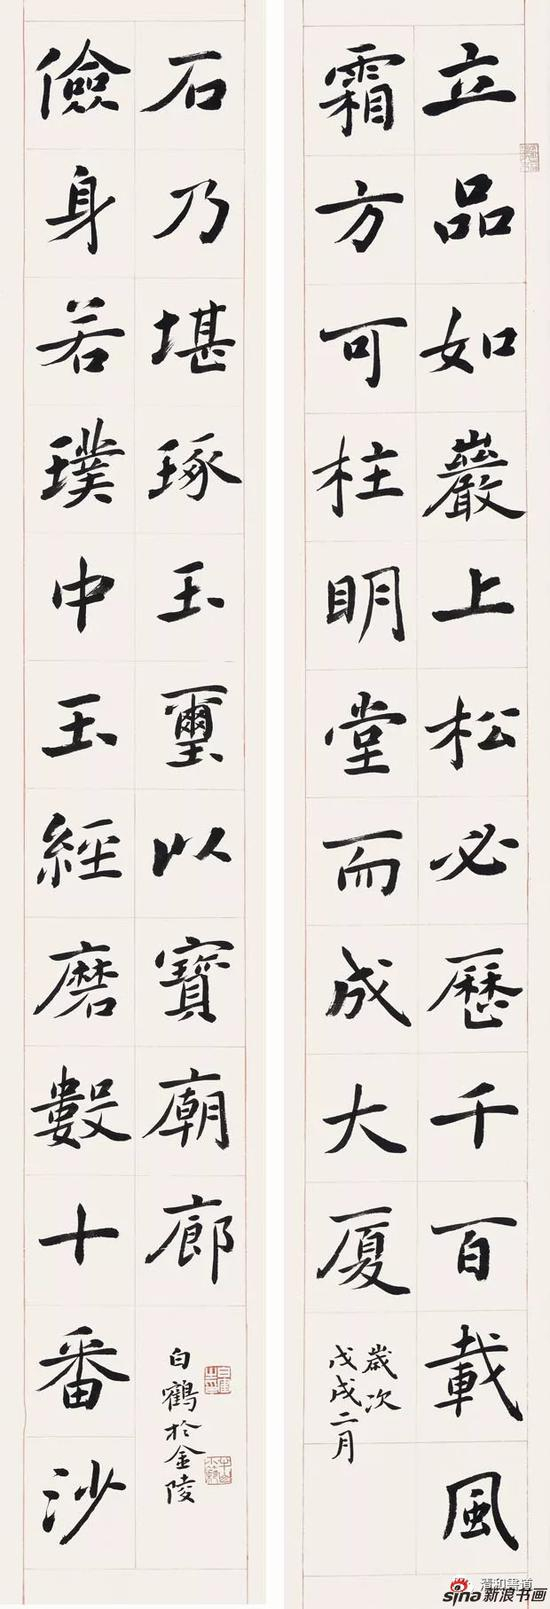 立品如巖上松必歷千百載風
霜方可柱明堂而成大厦
歲次
戊戌二月
儉身若璞中玉經磨數十番沙
石乃堪琢玉璽以寶廟廊
白鶴於金陵
清和書道
sina新浪书画